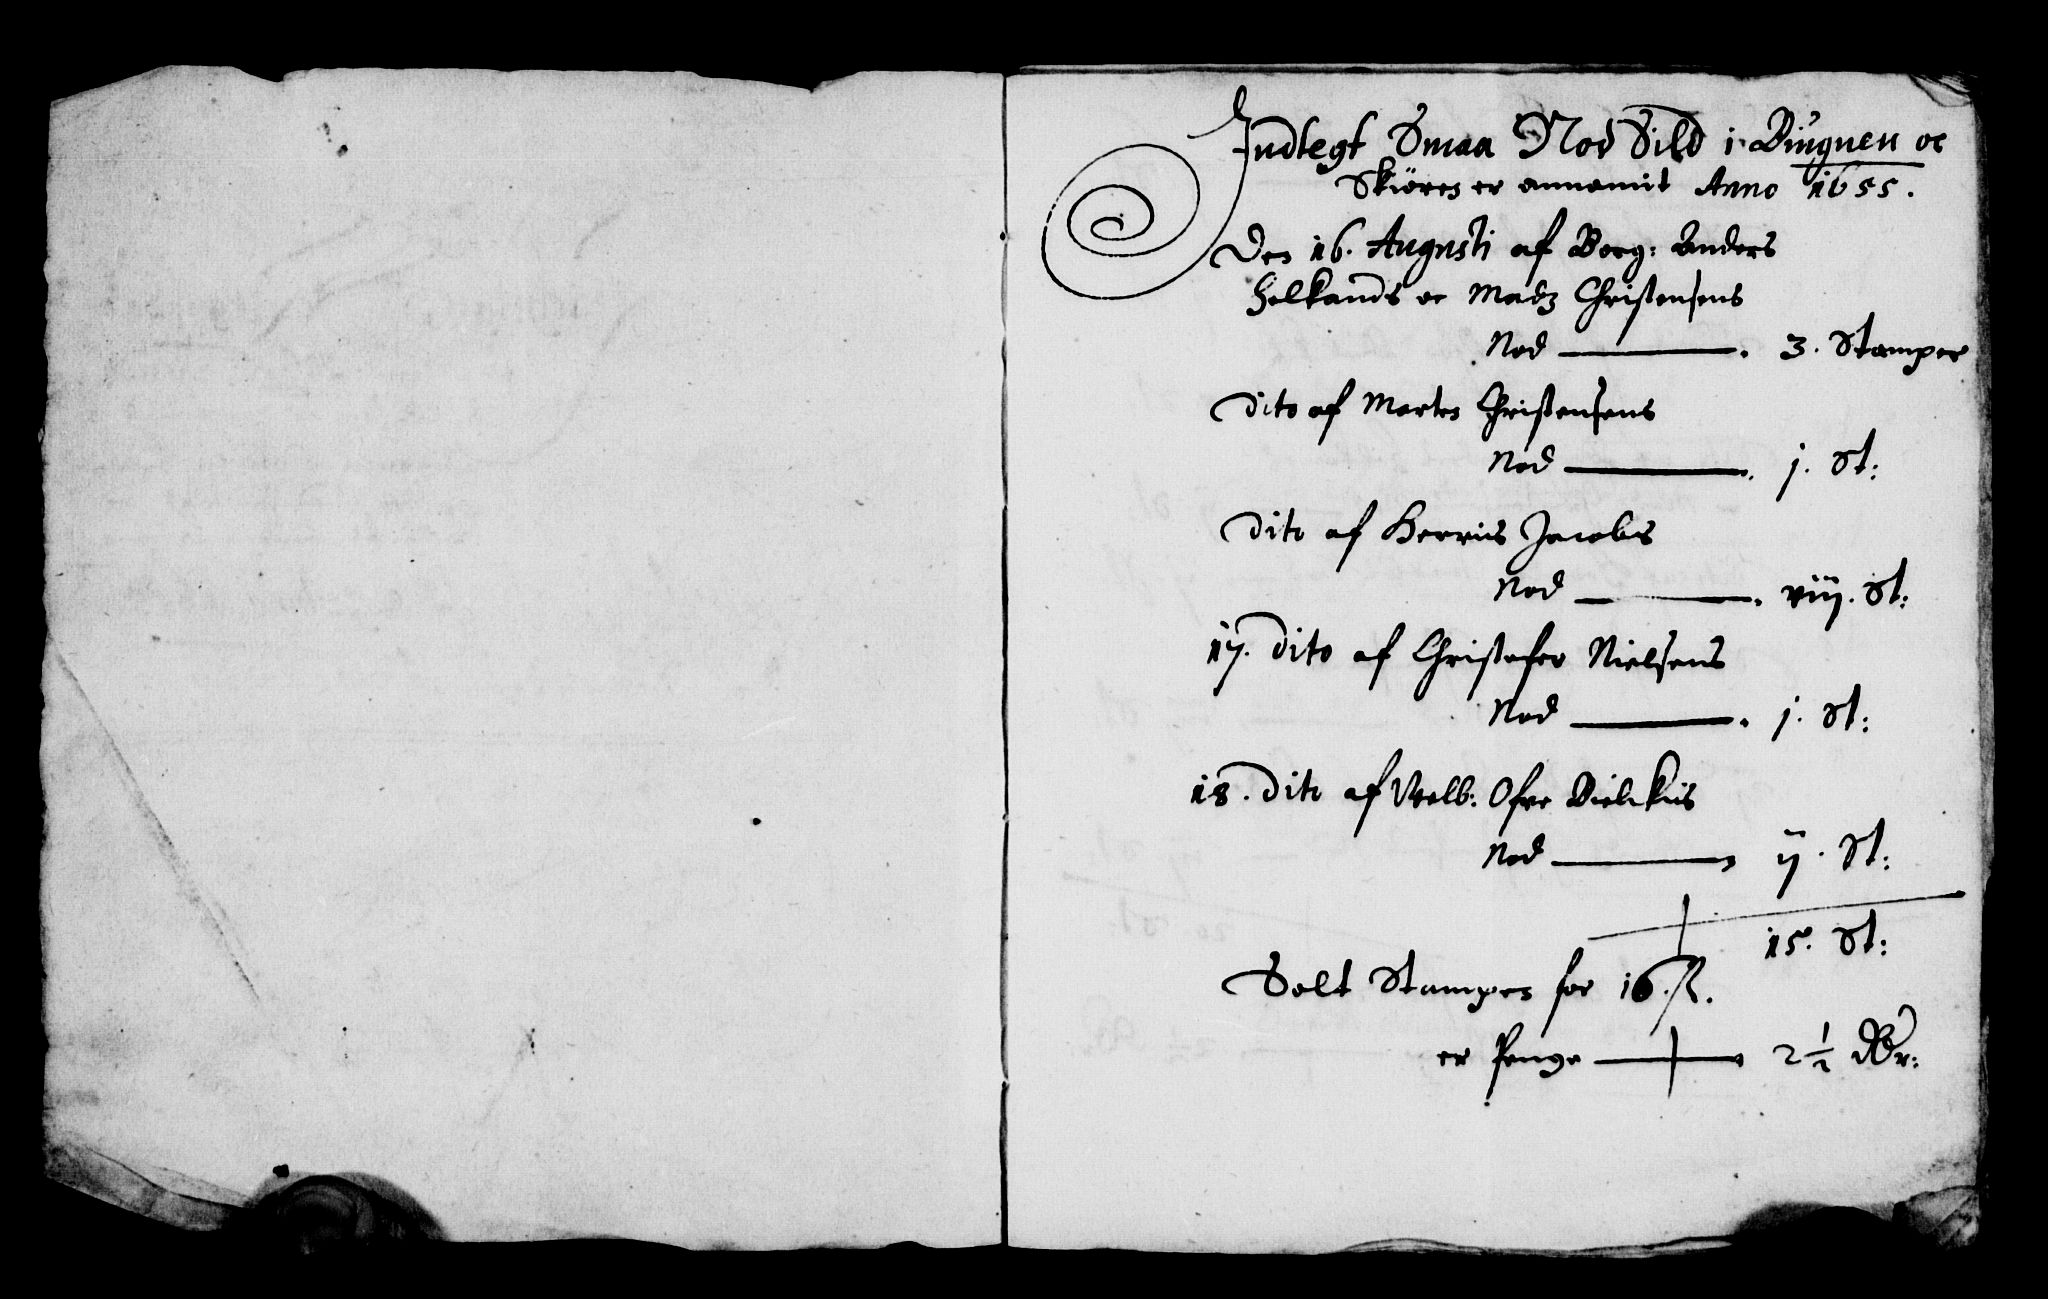 Indtegt Smaa Nod Sild i Buignen oc
Skiøres er annamit Anno 1655.
Den 16. Augusti af Borg: Anders
Helkands oc Madz Christensens
Nod . 3. Stamper
Dito af Morten Christensens
Nod . j. St:
Dito af Herrus Jacobs
Nod . viij. St:
17. Dito af Christofer Nielsens
Nod . j. St:
18. Dito af Welb: Ofve Bielckis
Nod ij. St:
15. St:
Solt Stampen for 16. ß.
er Penge 2 1/2 dlr: